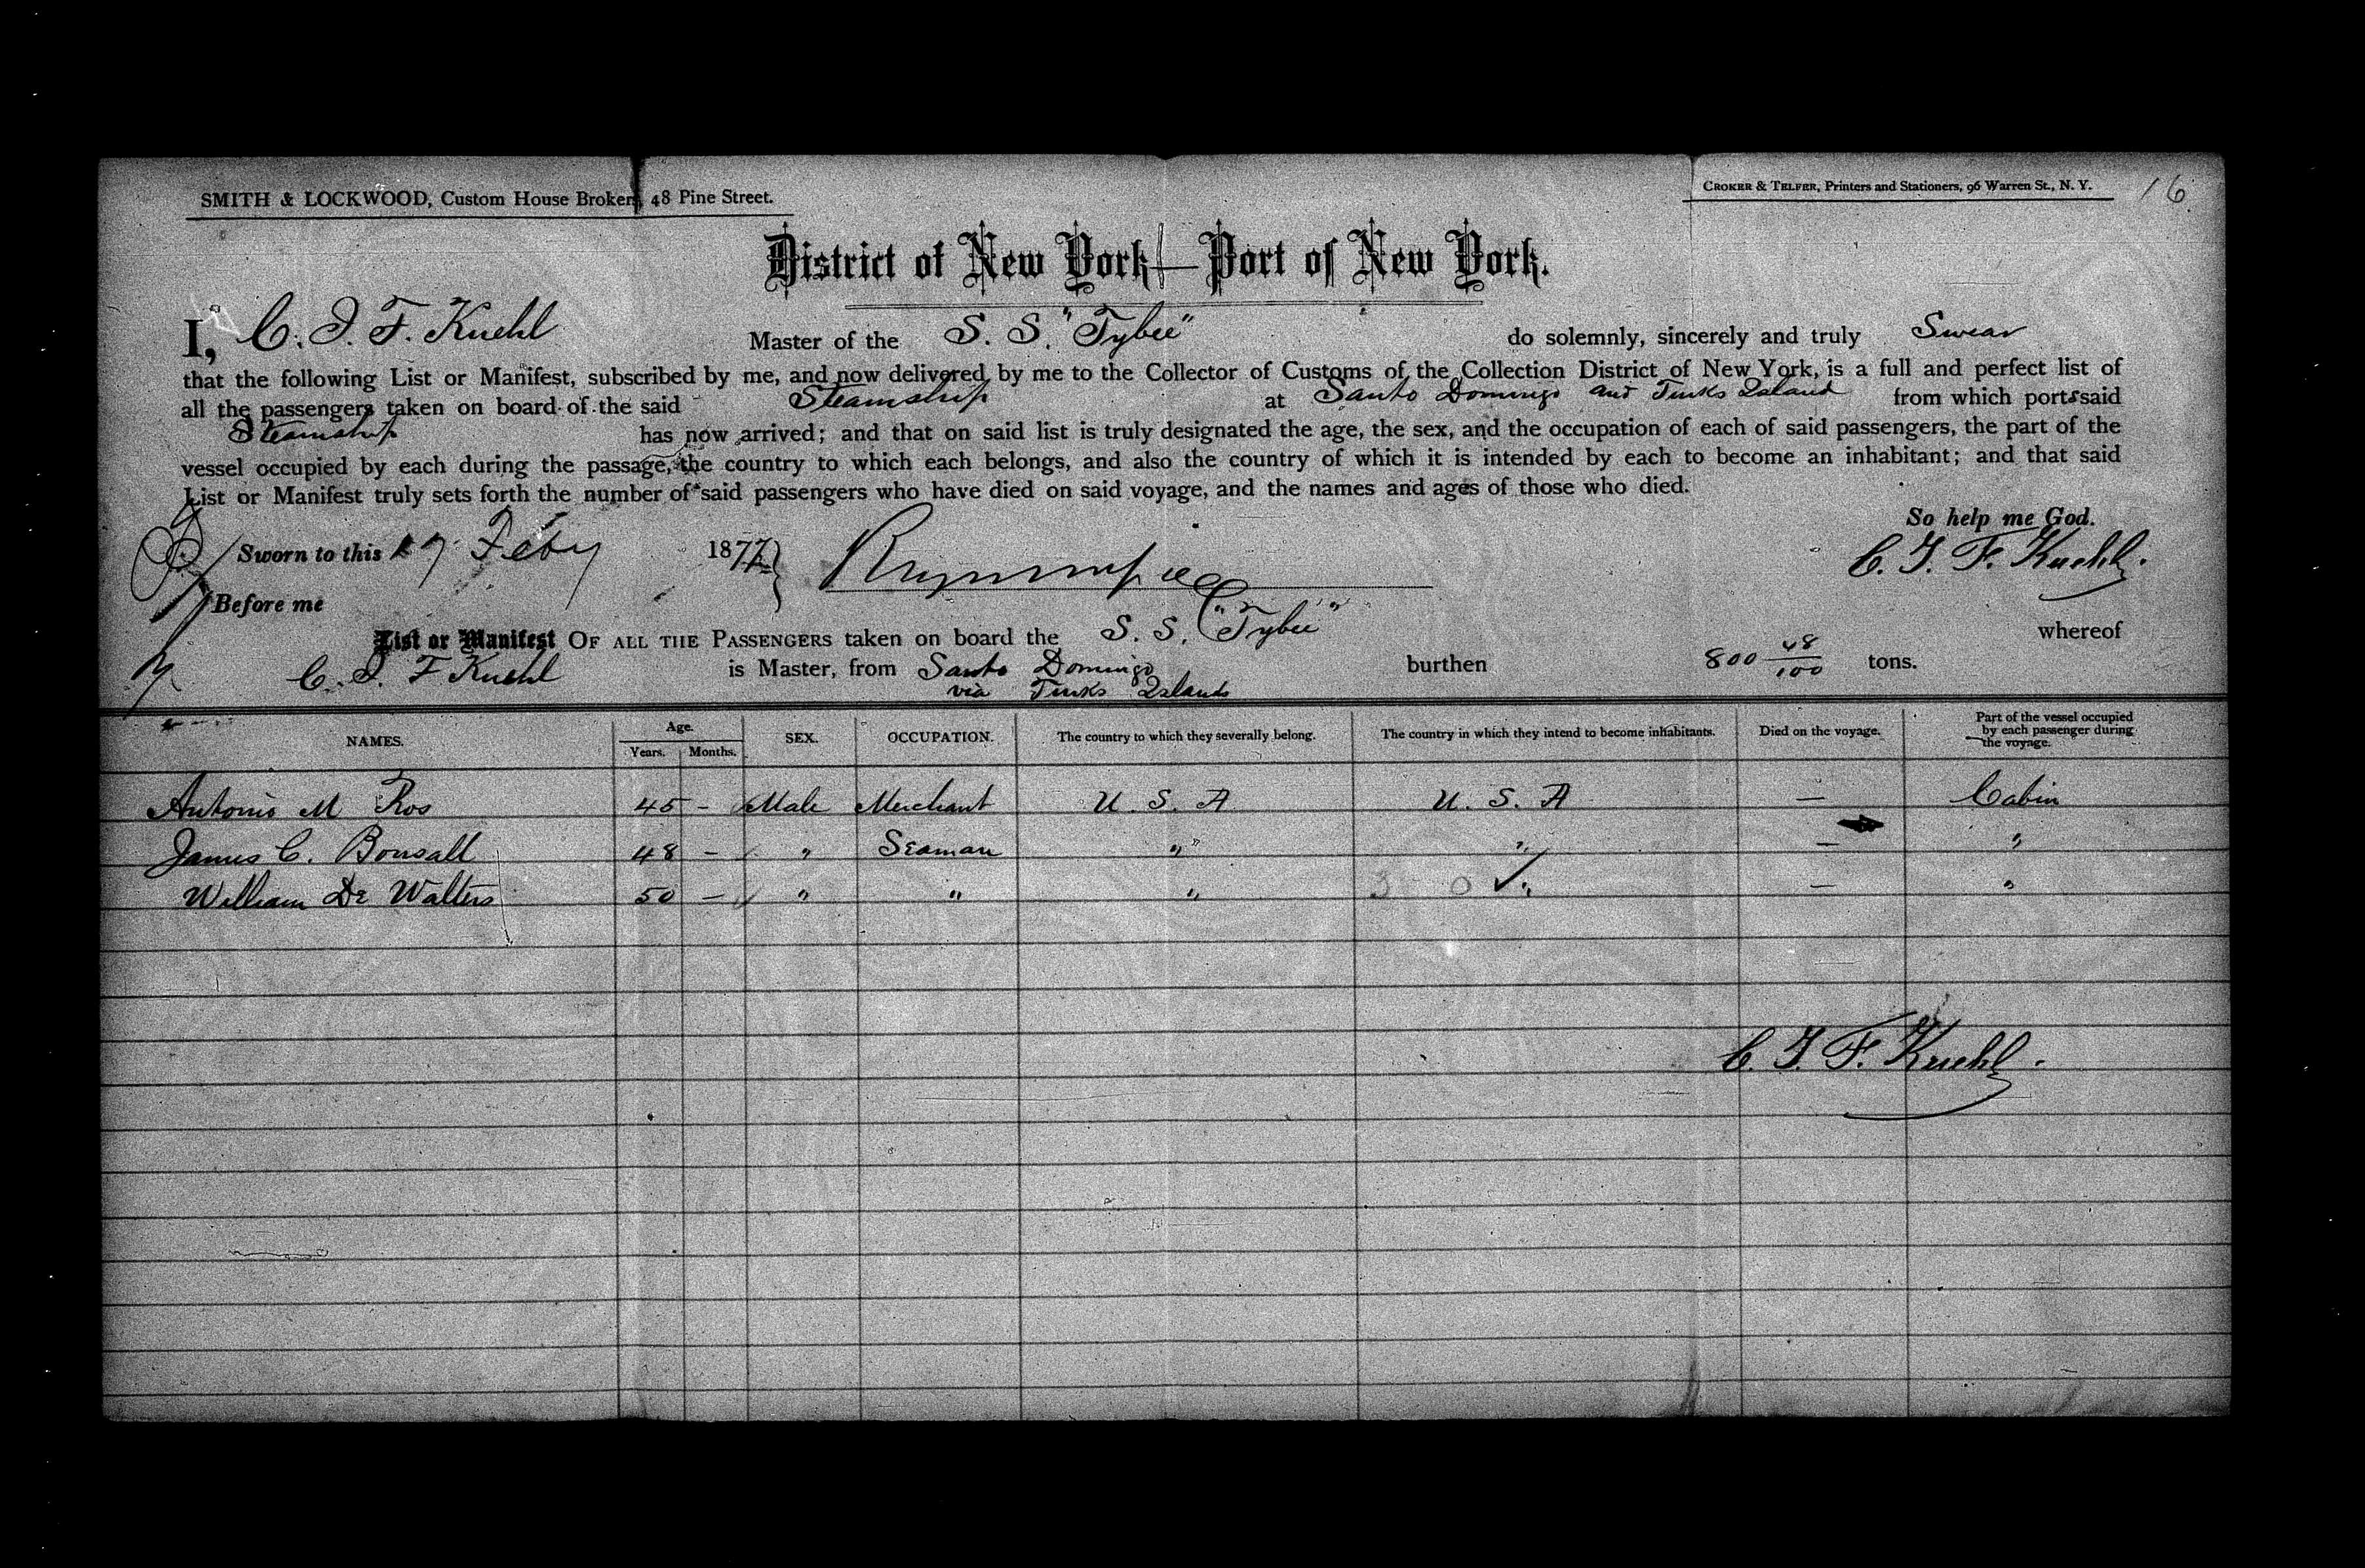 SMITH & LOCKWOOD, Custom House Brokers, 48 Pine Street.
CROKER & TELFER, Printers and Stationers, 96 Warren St., N. Y.
16
District of New York—Port of New York.
I, C. J. F. Kuehl Master of the S. S. "Tybee" do solemnly, sincerely and truly Swear
that the following List or Manifest, subscribed by me, and now delivered by me to the Collector of Customs of the Collection District of New York, is a full and perfect list of
all the passengers taken on board of the said Steamship at Santo Domingo and Turks Island from which ports said
Steamship has now arrived; and that on said list is truly designated the age, the sex, and the occupation of each of said passengers, the part of the
vessel occupied by each during the passage, the country to which each belongs, and also the country of which it is intended by each to become an inhabitant; and that said
List or Manifest truly sets forth the number of said passengers who have died on said voyage, and the names and ages of those who died.
So help me God.
Sworn to this Feby 1877 C. J. F. Kuehl.
Before me
List or Manifest OF ALL THE PASSENGERS taken on board the S. S. "Tybee" whereof
C. J. F Kuehl is Master, from Santo Domingo burthen 800 48/100 tons.
via Turks Islands
NAMES. Age. Years. Months. SEX. OCCUPATION. The country to which they severally belong. The country in which they intend to become inhabitants. Died on the voyage. Part of the vessel occupied by each passenger during the voyage.
Antonio M Ros 45 - Male Merchant U. S. A U. S. A — Cabin
James C. Bonsall 48 - " Seaman " " — "
William De Walters 50 - " " " " — "
C. J. F. Kuehl.